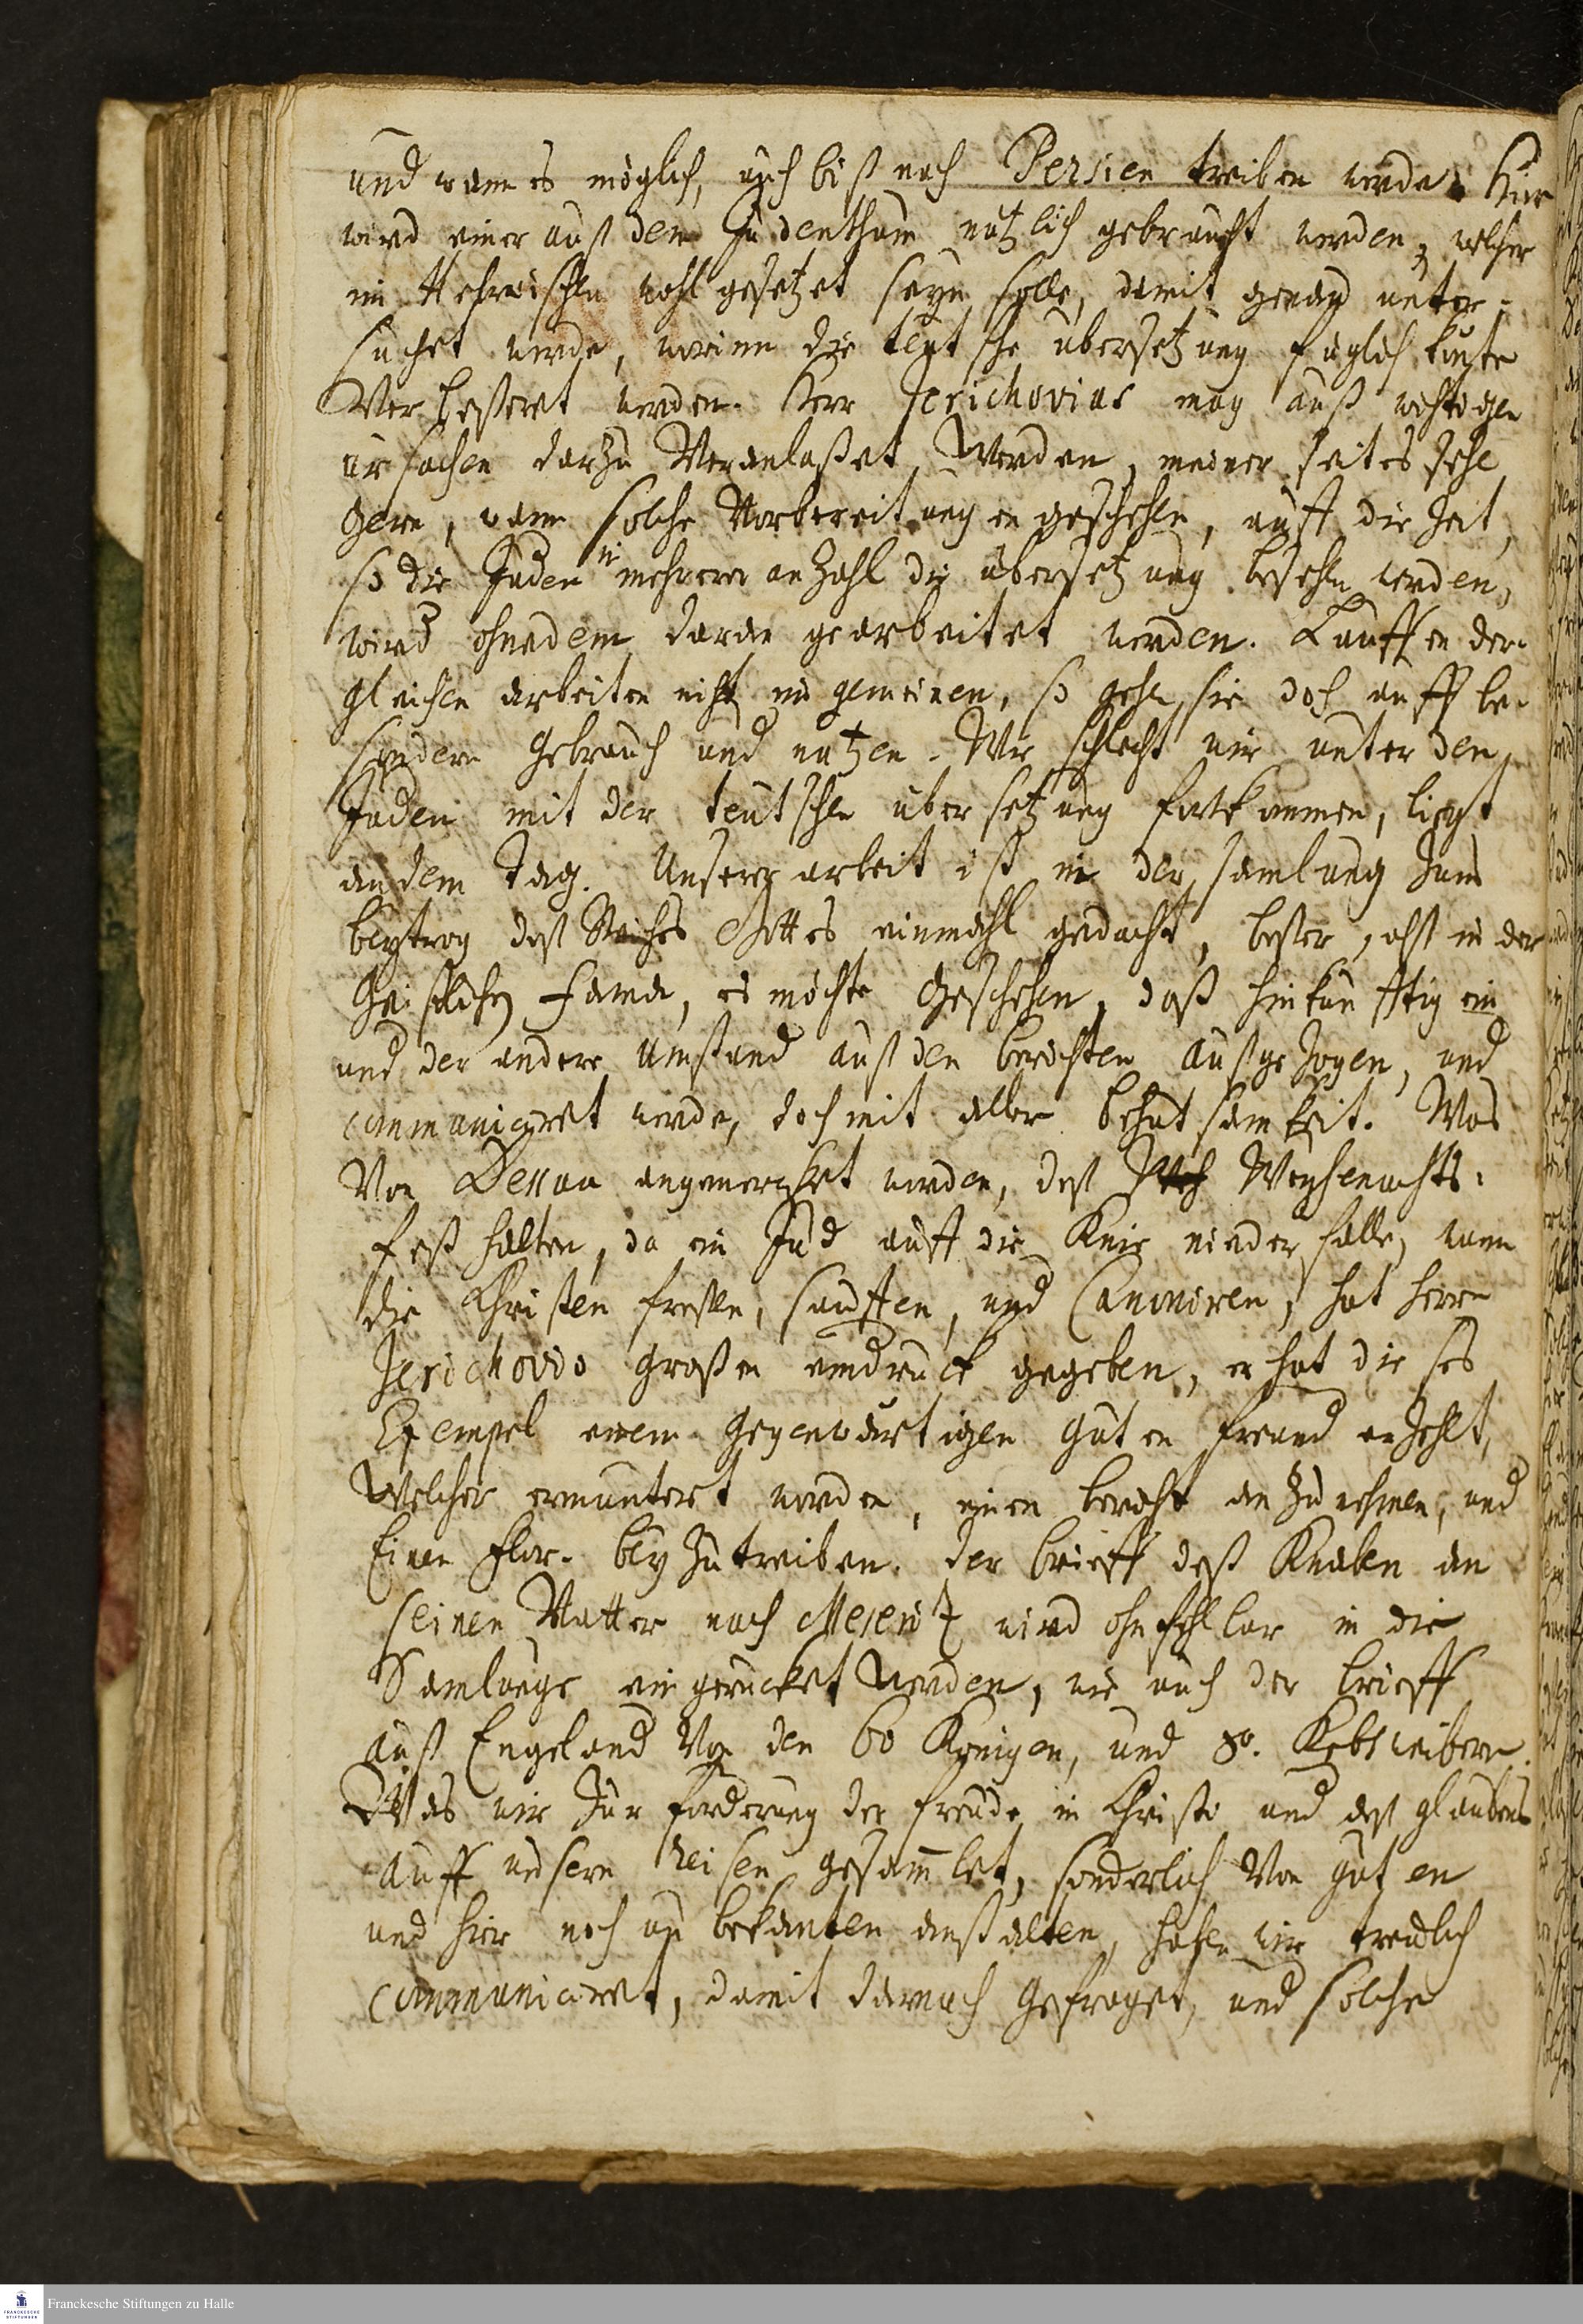 und wann es möglich, auch biß nach Persien treiben werde. Hier
wird einer auß dem Judenthum nutzlich gebraucht werden, welcher
im Hebreischen wohl gesetzet seyn solle, damit genau unter-
suchet werde, worinn die teutsche übersetzung füglich könte
Verbeßeret werden. Herr Jerichovius mag auß wichtigen
ursachen darzu Veranlaßet Werden, meiner seites sehe
gern, wann solche Vorbereitungen geschehen, auff die Zeit,
so die Juden in mehrerer anzahl die übersetzung besehen werden,
wird ohnedem daran gearbeitet werden. Lauffen der-
gleichen arbeiten nicht ins gemeinen, so gehen sie doch auff be-
sondern Gebrauch und nutzen. Wie schlecht wir unter den
Juden mit der teutschen übersetzung fortkommen, liegt
an dem Tag. Unserer arbeit ist in der samlung zum
beytrag deß Reiches Gottes einmahl gedacht, beßer, alß in der
Geistlichen Fama, es möchte Geschehen, daß hinkünfftig ein
und der andere Umstand auß den berichten außgezogen, und
communiciret werde, doch mit aller behutsamkeit. Was
Von Dessau angemercket worden, deß Weyhenachts-
fest halten, da ein Jud auff die Knie nieder falle, wann
die Christen freßen, sauffen, und Canoniren, hat Herrn
Jerichovio großen eindruck gegeben, er hat dieses
Exempel einem Gegenwärtigen Guten Freund erzehlt,
Welcher ermuntert worden, einen bericht anzunehmen, und
Einen Flor. beyzutreiben. Der brieff deß Knaben an
seinen Vatter nach Meseritz wird ohnfehlbar in die
Samlunge eingerucket Werden, wie auch der brieff
auß Engeland Von den 60 Königen, und 80. Kebsweibern.
Was wir zur forderung der freude in Christo und deß glaubens
auff unsern Reisen gesammlet, sonderlich Von guten
und hier noch unbekanten anstalten, haben wir treulich
communiciret, damit darnach Gefraget, und solche
Franckesche Stiftungen zu Halle